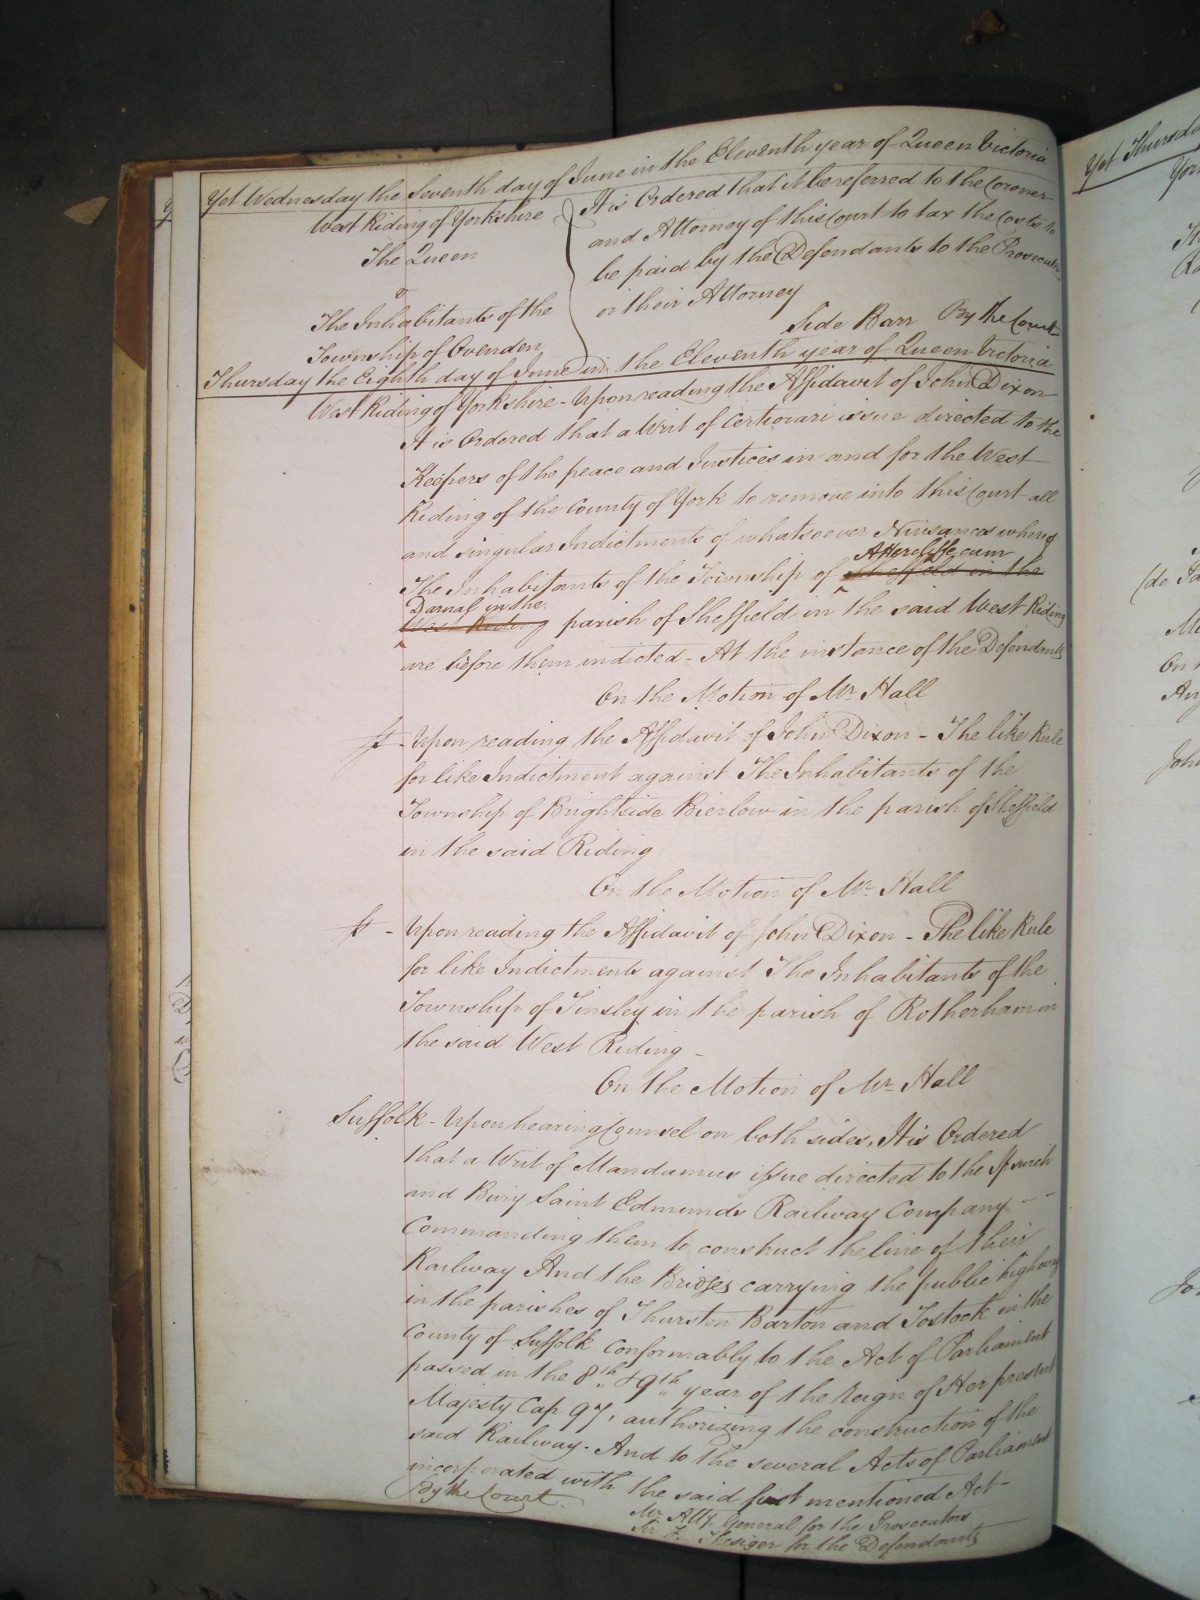 Yet Wednesday the Seventh day of June in the Eleventh year of Queen Victoria
West Riding of Yorkshire
The Queen
v
The Inhabitants of the
Township of Ovenden
It is Ordered that it be referred to the Coroner
and Attorney of this Court to tax the Costs to
be paid by the Defendants to the Prosecutors
or their Attorney
Side Barr By the Court
Thursday the Eighth day of June in the Eleventh year of Queen Victoria
West Riding of Yorkshire - Upon reading the Affidavit of John Dixon
It is Ordered that a Writ of Certiorari issue directed to the
Keepers of the peace and Justices in and for the West
Riding of the County of York to remove into this Court all
and singular Indictments of whatsoever Nuisances whereof
Attercliffe cum
The Inhabitants of the Township of Sheffield in the
Darnal in the
West Riding parish of Sheffield in the said West Riding
are before them indicted - At the instance of the Defendants
On the Motion of Mr. Hall
Upon reading the Affidavit of John Dixon - The like Rule
for like Indictment against The Inhabitants of the
Township of Brightside Bierlow in the parish of Sheffield
in the said Riding
On the Motion of Mr. Hall
Upon reading the Affidavit of John Dixon - The like Rule
for like Indictments against The Inhabitants of the
Township of Tinsley in the parish of Rotherham in
the said West Riding -
On the Motion of Mr. Hall
Suffolk - Upon hearing Counsel on both sides, It is Ordered
that a Writ of Mandamus issue directed to the Ipswich
and Bury Saint Edmunds Railway Company - -
Commanding them to construct the line of their
Railway And the Bridges carrying the public highway
in the parishes of Thurston Barton and Tostock in the
County of Suffolk conformably to the Act of Parliament
passed in the 8th & 9th year of the Reign of Her present
Majesty Cap 97, authorizing the construction of the
said Railway - And to the several Acts of Parliament
incorporated with the said first mentioned Act -
By the Court
Mr. Atty. General for the Prosecutors
Sir F. Thesiger for the Defendants
Yet Thursday